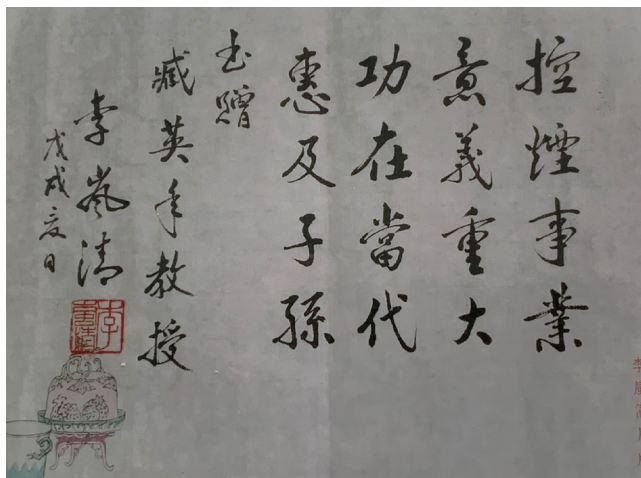 控煙事業
意義重大
功在當代
惠及子孫
書贈
臧英年教授
李嵐清
戊戌夏日